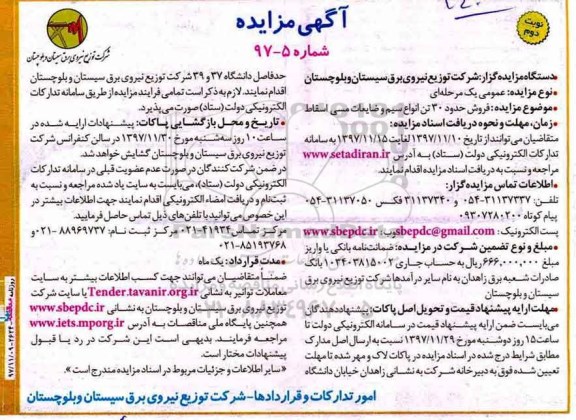 آگهی مزایده
شماره ۵-۹۷
نوبت دوم
شرکت توزیع نیروی برق سیستان و بلوچستان
• دستگاه مزایده گزار: شرکت توزیع نیروی برق سیستان وبلوچستان
• نوع مزایده: عمومی یک مرحله‌ای
• موضوع مزایده: فروش حدود ۳۰ تن انواع سیم و ضایعات مسی اسقاط
• زمان، مهلت و نحوه دریافت اسناد مزایده:
متقاضیان می‌توانند از تاریخ ۱۳۹۷/۱۱/۱۰ لغایت ۱۳۹۷/۱۱/۱۵ به سامانه
تدارکات الکترونیکی دولت (ستاد) به آدرس www.setadiran.ir
مراجعه و نسبت به دریافت اسناد مزایده اقدام نمایند.
• اطلاعات تماس مزایده گزار:
تلفن: ۳۱۱۳۷۳۳۷-۰۵۴ و ۳۱۱۳۷۳۴۰ فکس ۳۱۱۳۷۰۵۰-۰۵۴
پیام کوتاه ۰۹۳۰۷۲۸۰۲۰۰
پست الکترونیک: sbepdc@gmail.com وب www.sbepdc.ir
• مبلغ و نوع تضمین شرکت در مزایده: ضمانت‌نامه بانکی یا واریز
مبلغ ۶۶۶,۰۰۰,۰۰۰ ریال به حساب جاری ۰۱۰۲۰۳۸۱۵۰۰۲ بانک
صادرات شعبه برق زاهدان به نام سایر درآمدها شرکت توزیع نیروی برق
سیستان و بلوچستان
• مهلت ارایه پیشنهاد قیمت و تحویل اصل پاکات: پیشنهاددهندگان
می‌بایست ضمن ارایه پیشنهاد قیمت در سامانه الکترونیکی دولت تا
ساعت ۱۵ روز دوشنبه مورخ ۱۳۹۷/۱۱/۲۹ نسبت به ارسال اصل مدارک
مطابق شرایط درج شده در اسناد مزایده در پاکات لاک و مهر شده تا مهلت
تعیین شده فوق به دبیرخانه شرکت به نشانی زاهدان خیابان دانشگاه
حدفاصل دانشگاه ۳۷ و ۳۹ شرکت توزیع نیروی برق سیستان و بلوچستان
اقدام نمایند. لازم به ذکر است تمامی فرایند مزایده از طریق سامانه تدارکات
الکترونیکی دولت (ستاد) صورت می‌پذیرد.
• تاریخ و محل بازگشایی پاکات: پیشنهادات ارایه شده در
ساعت ۱۰ روز سه‌شنبه مورخ ۱۳۹۷/۱۱/۳۰ در سالن کنفرانس شرکت
توزیع نیروی برق سیستان و بلوچستان گشایش خواهد شد.
ضمن شرکت‌کنندگان در صورت عدم عضویت قبلی در سامانه تدارکات
الکترونیکی دولت (ستاد)، می‌بایست به سایت یاد شده مراجعه و نسبت به
ثبت‌نام و دریافت امضاء الکترونیکی اقدام نمایند جهت اطلاعات بیشتر در
این خصوص می‌توانید با تلفن‌های ذیل تماس حاصل فرمایید.
مرکز تماس: ۴۱۹۳۴-۰۲۱ مرکز ثبت نام: ۸۸۹۶۹۷۳۷-۰۲۱ و
۸۵۱۹۳۷۶۸-۰۲۱
• مدت قرارداد: یک ماه
ضمناً متقاضیان می توانند جهت کسب اطلاعات بیشتر به سایت
معاملات توانیر به نشانی Tender.tavanir.org.ir یا سایت شرکت
توزیع نیروی برق سیستان و بلوچستان به نشانی www.sbepdc.ir
همچنین پایگاه ملی مناقصات به آدرس www.iets.mporg.ir
مراجعه فرمایند. بدیهی است این شرکت در رد یا قبول
پیشنهادات مختار است.
«سایر اطلاعات و جزئیات مربوط در اسناد مزایده مندرج است».
امور تدارکات و قراردادها - شرکت توزیع نیروی برق سیستان وبلوچستان